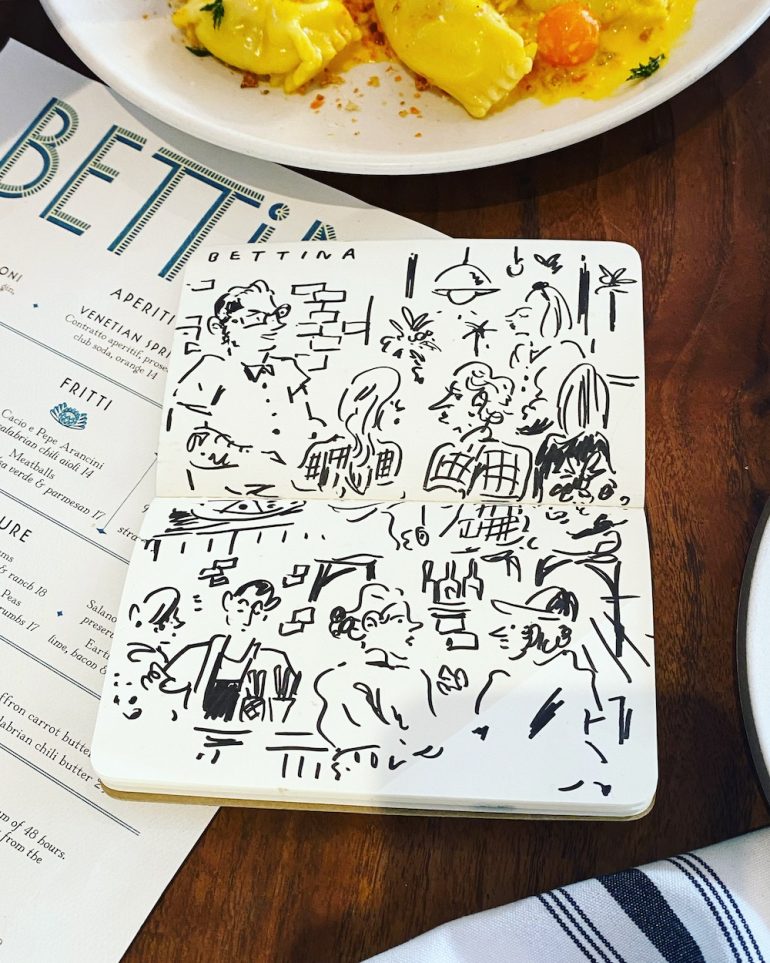 BETTINA
ONI
gin,
APERITI
VENETIAN SPRI
Contratto aperitif, prose
club soda, orange 14
FRITTI
Cacio e Pepe Arancini
calabrian chili aioli 14
Meatballs
verde & parmesan 17
stra
URE
& ranch 18
Peas
rumbs 17
Salano
preser
Eart
lime, bacon &
ffron carrot butter
labrian chili butter 2
um of 48 hours.
from the
BETTINA